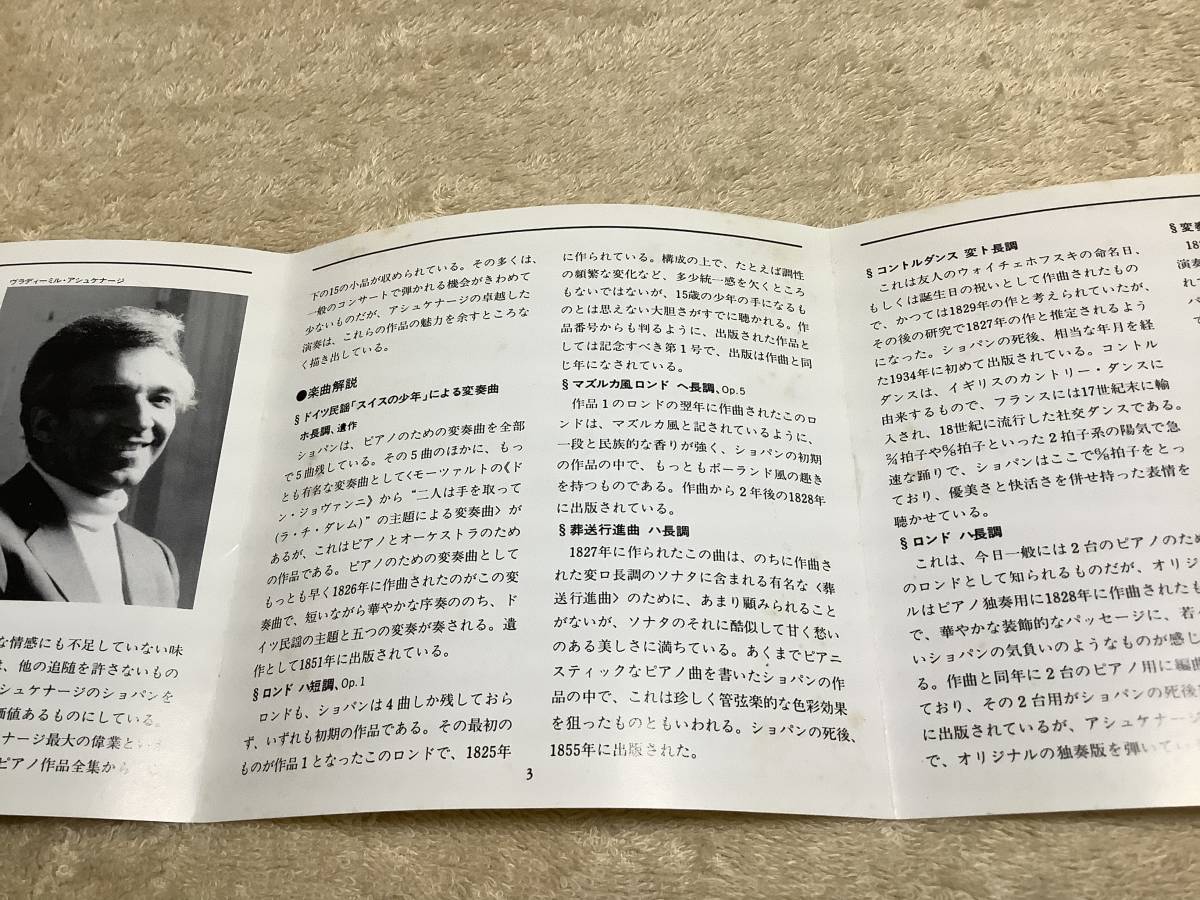 ヴラディーミル・アシュケナージ
な情感にも不足していない味
は、他の追随を許さないもの
シュケナージのショパンを
価値あるものにしている。
ナージ最大の偉業とい
ピアノ作品全集から
下の15の小品が収められている。その多くは、
一般のコンサートで弾かれる機会がきわめて
少ないものだが、アシュケナージの卓越した
演奏は、これらの作品の魅力を余すところな
く描き出している。
●楽曲解説
§ドイツ民謡「スイスの少年」による変奏曲
ホ長調、遺作
ショパンは、ピアノのための変奏曲を全部
で5曲残している。その5曲のほかに、もっ
とも有名な変奏曲として〈モーツァルトの《ド
ン・ジョヴァンニ》から“二人は手を取って
(ラ・チ・ダレム)”の主題による変奏曲〉が
あるが、これはピアノとオーケストラのため
の作品である。ピアノのための変奏曲として
もっとも早く1826年に作曲されたのがこの変
奏曲で、短いながら華やかな序奏ののち、ド
イツ民謡の主題と五つの変奏が奏される。遺
作として1851年に出版されている。
§ロンド ハ短調、Op.1
ロンドも、ショパンは4曲しか残しておら
ず、いずれも初期の作品である。その最初の
ものが作品1となったこのロンドで、1825年
に作られている。構成の上で、たとえば調性
の頻繁な変化など、多少統一感を欠くところ
もないではないが、15歳の少年の手になるも
のとは思えない大胆さがすでに聴かれる。作
品番号からも判るように、出版された作品と
しては記念すべき第1号で、出版は作曲と同
じ年になされている。
§マズルカ風ロンド ヘ長調、Op.5
作品1のロンドの翌年に作曲されたこのロ
ンドは、マズルカ風と記されているように、
一段と民族的な香りが強く、ショパンの初期
の作品の中で、もっともポーランド風の趣き
を持つものである。作曲から2年後の1828年
に出版されている。
§葬送行進曲 ハ長調
1827年に作られたこの曲は、のちに作曲さ
れた変ロ長調のソナタに含まれる有名な〈葬
送行進曲〉のために、あまり顧みられること
がないが、ソナタのそれに酷似して甘く愁い
のある美しさに満ちている。あくまでピアニ
スティックなピアノ曲を書いたショパンの作
品の中で、これは珍しく管弦楽的な色彩効果
を狙ったものともいわれる。ショパンの死後、
1855年に出版された。
3
§コントルダンス 変ト長調
これは友人のウォイチェホフスキの命名日、
もしくは誕生日の祝いとして作曲されたもの
で、かつては1829年の作と考えられていたが、
その後の研究で1827年の作と推定されるよう
になった。ショパンの死後、相当な年月を経
た1934年に初めて出版されている。コントル
ダンスは、イギリスのカントリー・ダンスに
由来するもので、フランスには17世紀末に輸
入され、18世紀に流行した社交ダンスである。
2/4拍子や6/8拍子といった2拍子系の陽気で急
速な踊りで、ショパンはここで6/8拍子をとっ
ており、優美さと快活さを併せ持った表情を
聴かせている。
§ロンド ハ長調
これは、今日一般には2台のピアノのため
のロンドとして知られるものだが、オリジ
ルはピアノ独奏用に1828年に作曲されたも
で、華やかな装飾的なパッセージに、若
いショパンの気負いのようなものが感じ
る。作曲と同年に2台のピアノ用に編曲
ており、その2台用がショパンの死後
に出版されているが、アシュケナージ
で、オリジナルの独奏版を弾いてい
§変奏
18
演奏
れて
パ
て